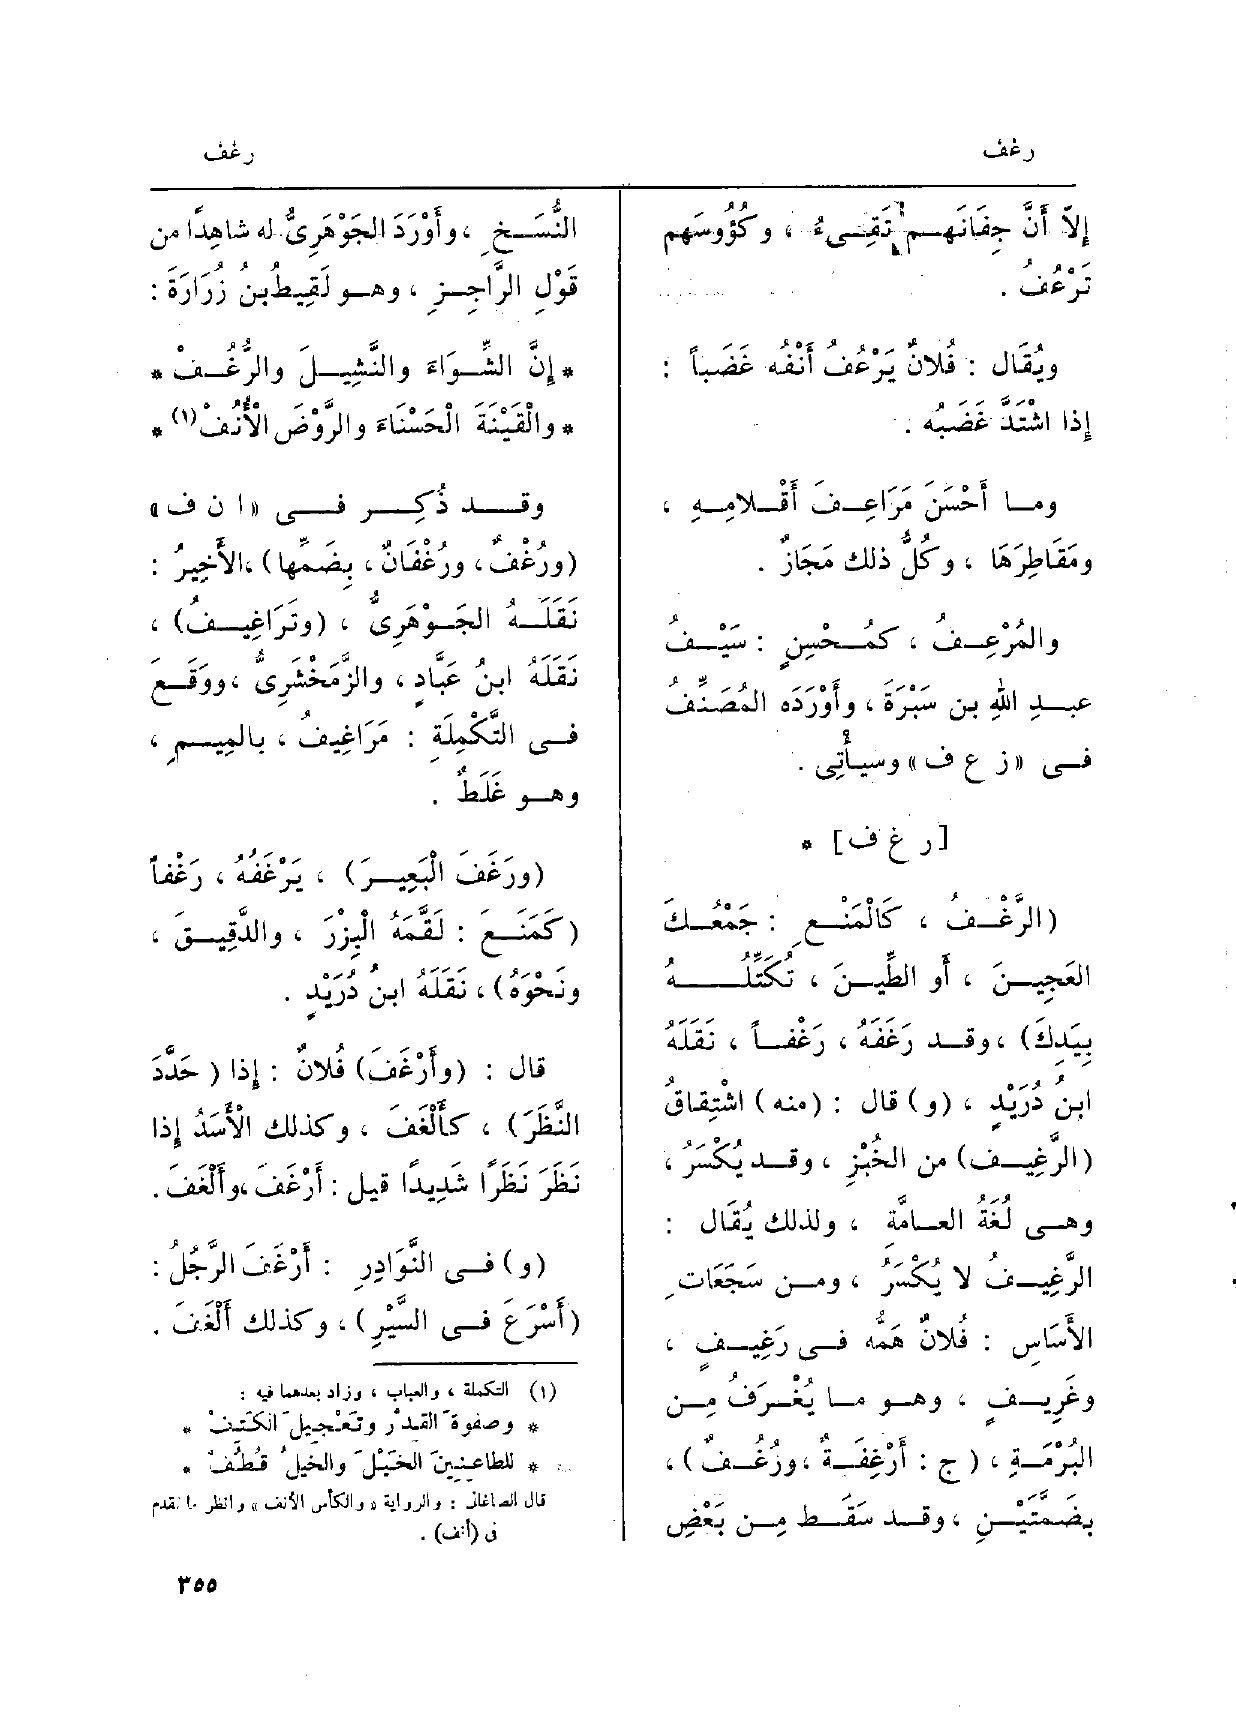 رغف
رغف
إلاّ أَنَّ جِفَانَهــم تَقِــىءُ ، وكُؤُوسَهم
تَرْعُفُ .
ويُقَال : فُلانٌ يَرْعُفُ أَنْفُه غَضَباً :
إذا اشْتَدَّ غَضَبُه .
ومــا أَحْسَنَ مَرَاعِــفَ أَقْــلامِــهِ ،
ومَقَاطِرَهَا ، وكُلُّ ذلك مَجَازٌ .
والمُرْعِــفُ ، كمُــحْسِنٍ : سَيْــفُ
عبــدِ اللهِ بن سَبْرَةَ ، وأَوْرَدَه المُصَنِّفُ
فــى «ز ع ف» وسيأْتِى .
[ ر غ ف ] *
(الرَّغْــفُ ، كَالْمَنْــعِ : جَمْعُــكَ
العَجِيــنَ ، أَو الطِّيــنَ ، تُكَتِّلُــــهُ
بِيَدِكَ) ، وقــد رَغَفَهُ ، رَغْفــاً ، نَقَلَهُ
ابنُ دُرَيْدٍ ، (و) قال : (منه) اشْتِقاقُ
(الرَّغِيــف) من الخُبْزِ ، وقــد يُكْسَرُ ،
وهــى لُغَةُ العــامَّة ، ولذلك يُقَال :
الرَّغِيــفُ لا يُكْسَرُ ، ومــن سَجَعَاتِ
الأَسَاسِ : فُلانٌ هَمُّه فــى رَغِيــفٍ ،
وغَرِيــفٍ ، وهــو مــا يُغْرَفُ مِــن
البُرْمَــةِ ، ( ج : أَرْغِفَــةٌ ، ورُغُــفٌ ) ،
بضَمتَّيْــنِ ، وقــد سَقَــط مِــن بَعْضِ
النُّسَــخِ ، وأَوْرَدَ الجَوْهَرِىُّ له شاهِدًا من
قَوْلِ الرَّاجِــزِ ، وهــو لَقِيطُ بنُ زُرَارَةَ :
* إِنَّ الشِّــوَاءَ والنَّشِيــلَ والرُّغُــفْ *
* والْقَيْنَةَ الْحَسْنَاءَ والرَّوْضَ الْأُنُفْ(١) *
وقــــد ذُكِــــر فــــى «ا ن ف »
(ورُغْفٌ ، ورُغْفَانٌ ، بضَمِّها) ، الأَخِيرُ :
نَقَلَــهُ الجَــوْهَرِىُّ ، (وتَرَاغِيــفُ) ،
نَقَلَهُ ابنُ عَبَّادٍ ، والزَّمَخْشَرِىُّ ، ووَقَــعَ
فــى التَّكْمِلَةِ : مَرَاغِيفُ ، بالمِيــمِ ،
وهــو غَلَطٌ .
(ورَغَفَ الْبَعِيــرَ) ، يَرْغَفُهُ ، رَغْفاً
(كَمَنَــعَ : لَقَّمَهُ الْبِزْرَ ، والدَّقِيــقَ ،
ونَحْوَهُ) ، نَقَلَهُ ابنُ دُرَيْدٍ .
قال : (وأَرْغَفَ) فُلانٌ : إذا ( حَدَّدَ
النَّظَرَ) ، كأَلْغَفَ ، وكذلك الْأَسَدُ إذا
نَظَرَ نَظَرًا شَدِيدًا قيل : أَرْغَفَ ، وأَلْغَفَ .
(و) فــى النَّوَادِرِ : أَرْغَفَ الرَّجُلُ :
(أَسْرَعَ فــى السَّيْرِ) ، وكذلك أَلْغَفَ .
(١) التكملة ، والعباب ، وزاد بعدهما فيه :
* وصفوةَ القدْرِ وتَعْجيلَ الكَتِفْ *
* للطاعنِينَ الخَيْلَ والخيلُ قُطُفْ *
قال الصاغانى : والرواية «والكأس الأنف» وانظر ما تقدم
فى (أنف) .
٣٥٥